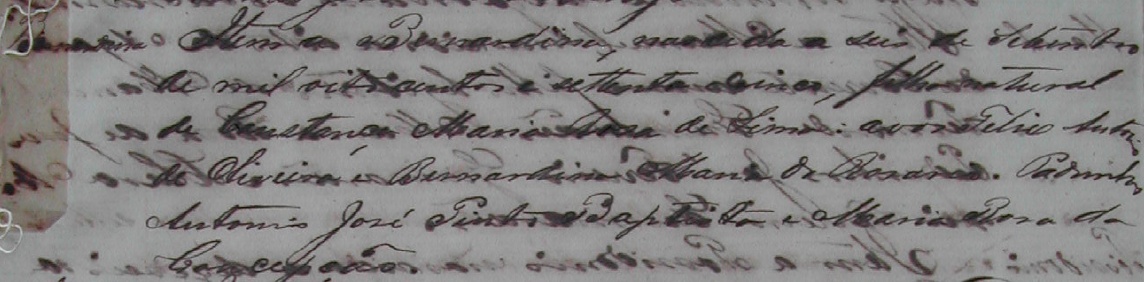 Item a Bernardina, nascida a seis de Setembro
de mil oitocentos e settenta e cinco, filha natural
de Constança Maria Rosa de Lima: avós Felis Anto
de Oliveira e Bernardina Maria do Rosario. Padrinhos
Antonio José Pinto Baptista e Maria Rosa da
Conceição.